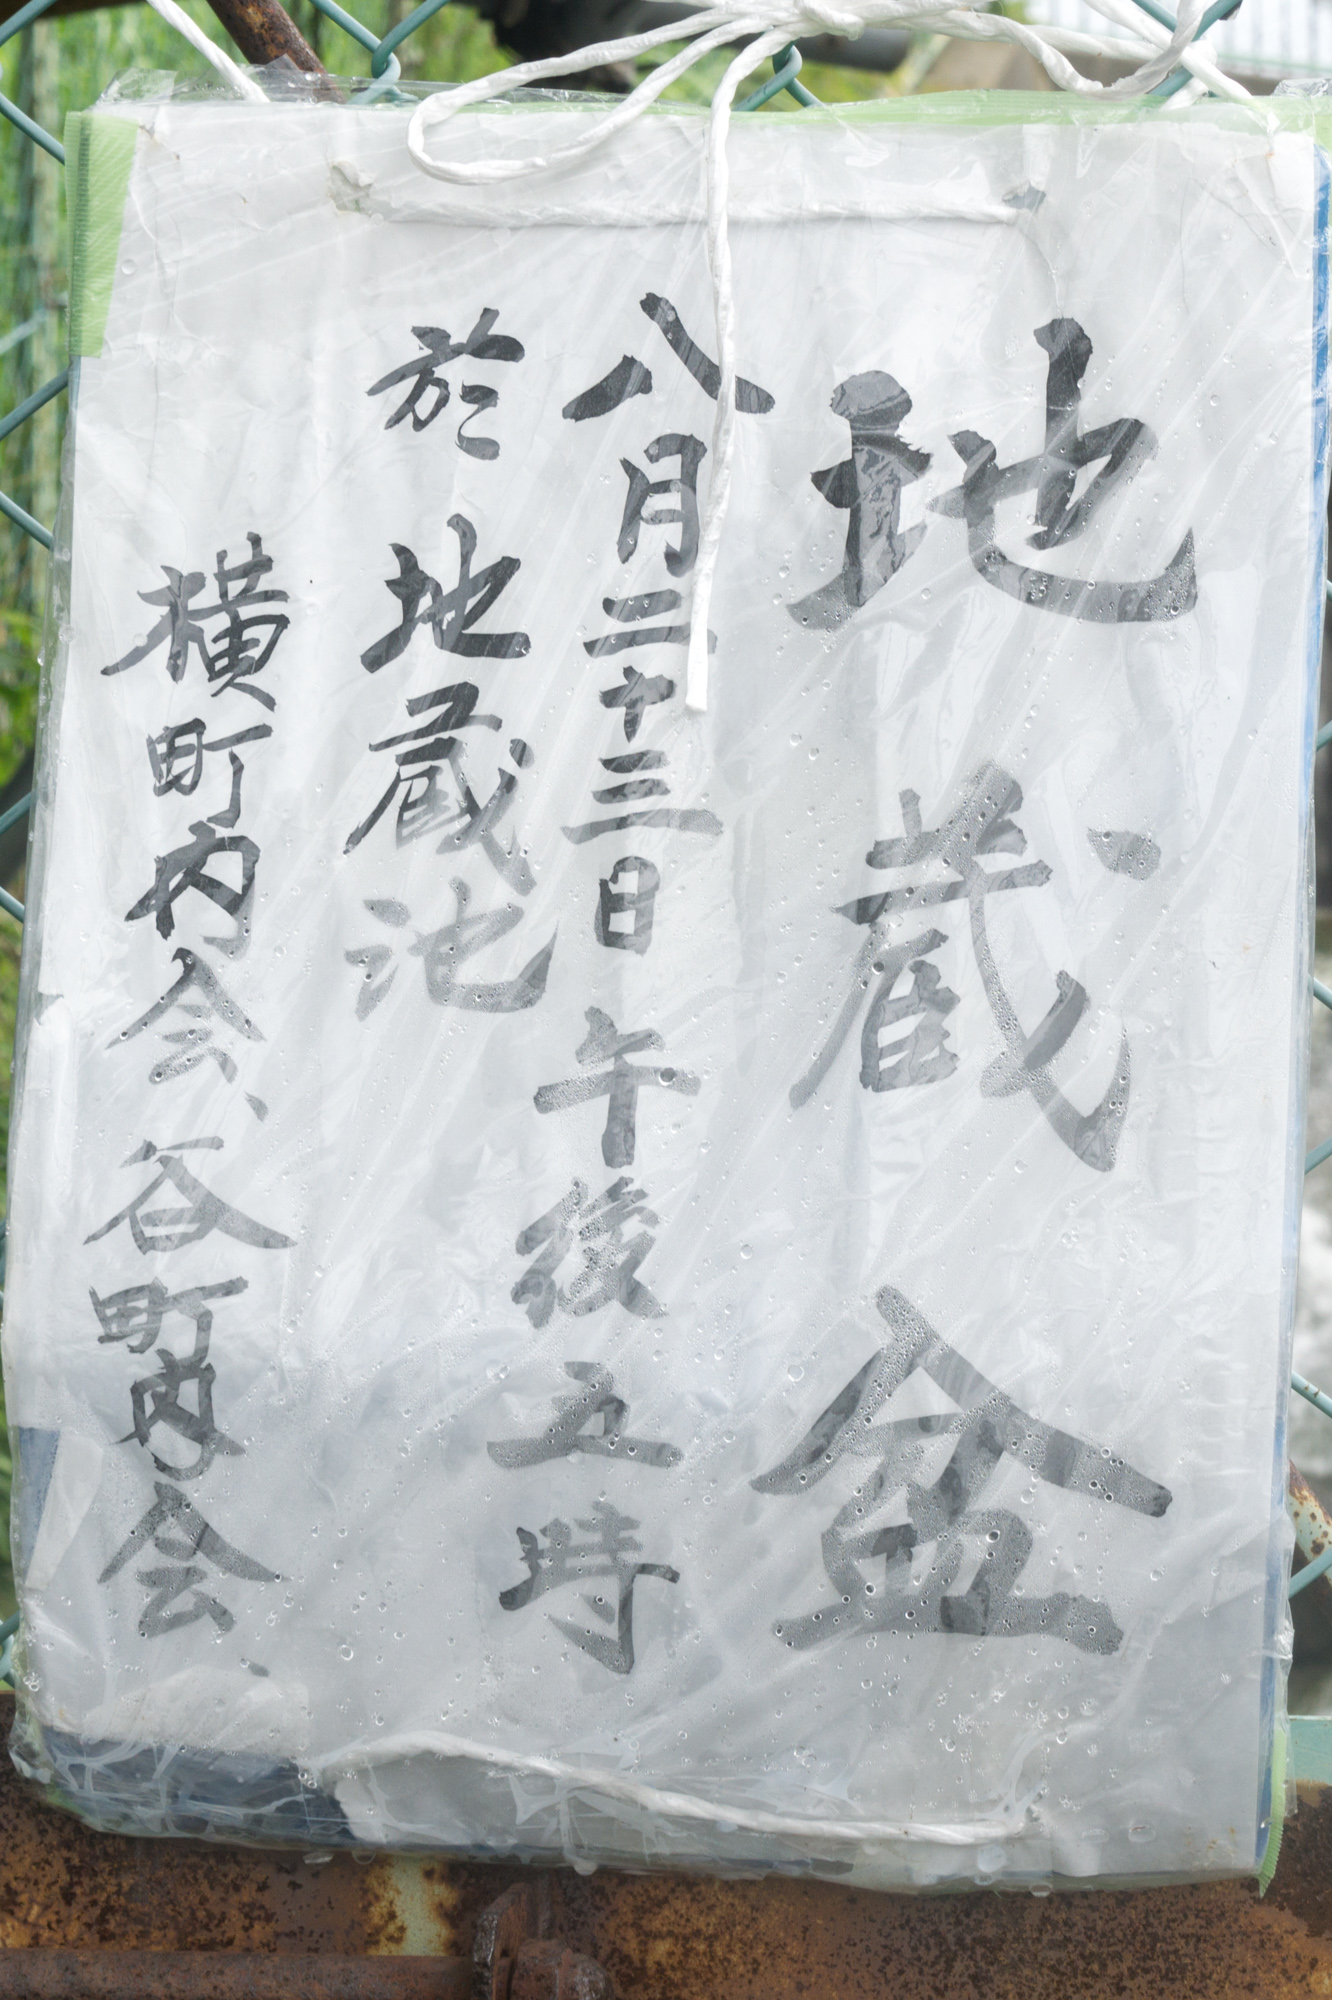 地蔵盆
八月二十三日午後五時
於 地蔵池
横町内会、谷町内会、